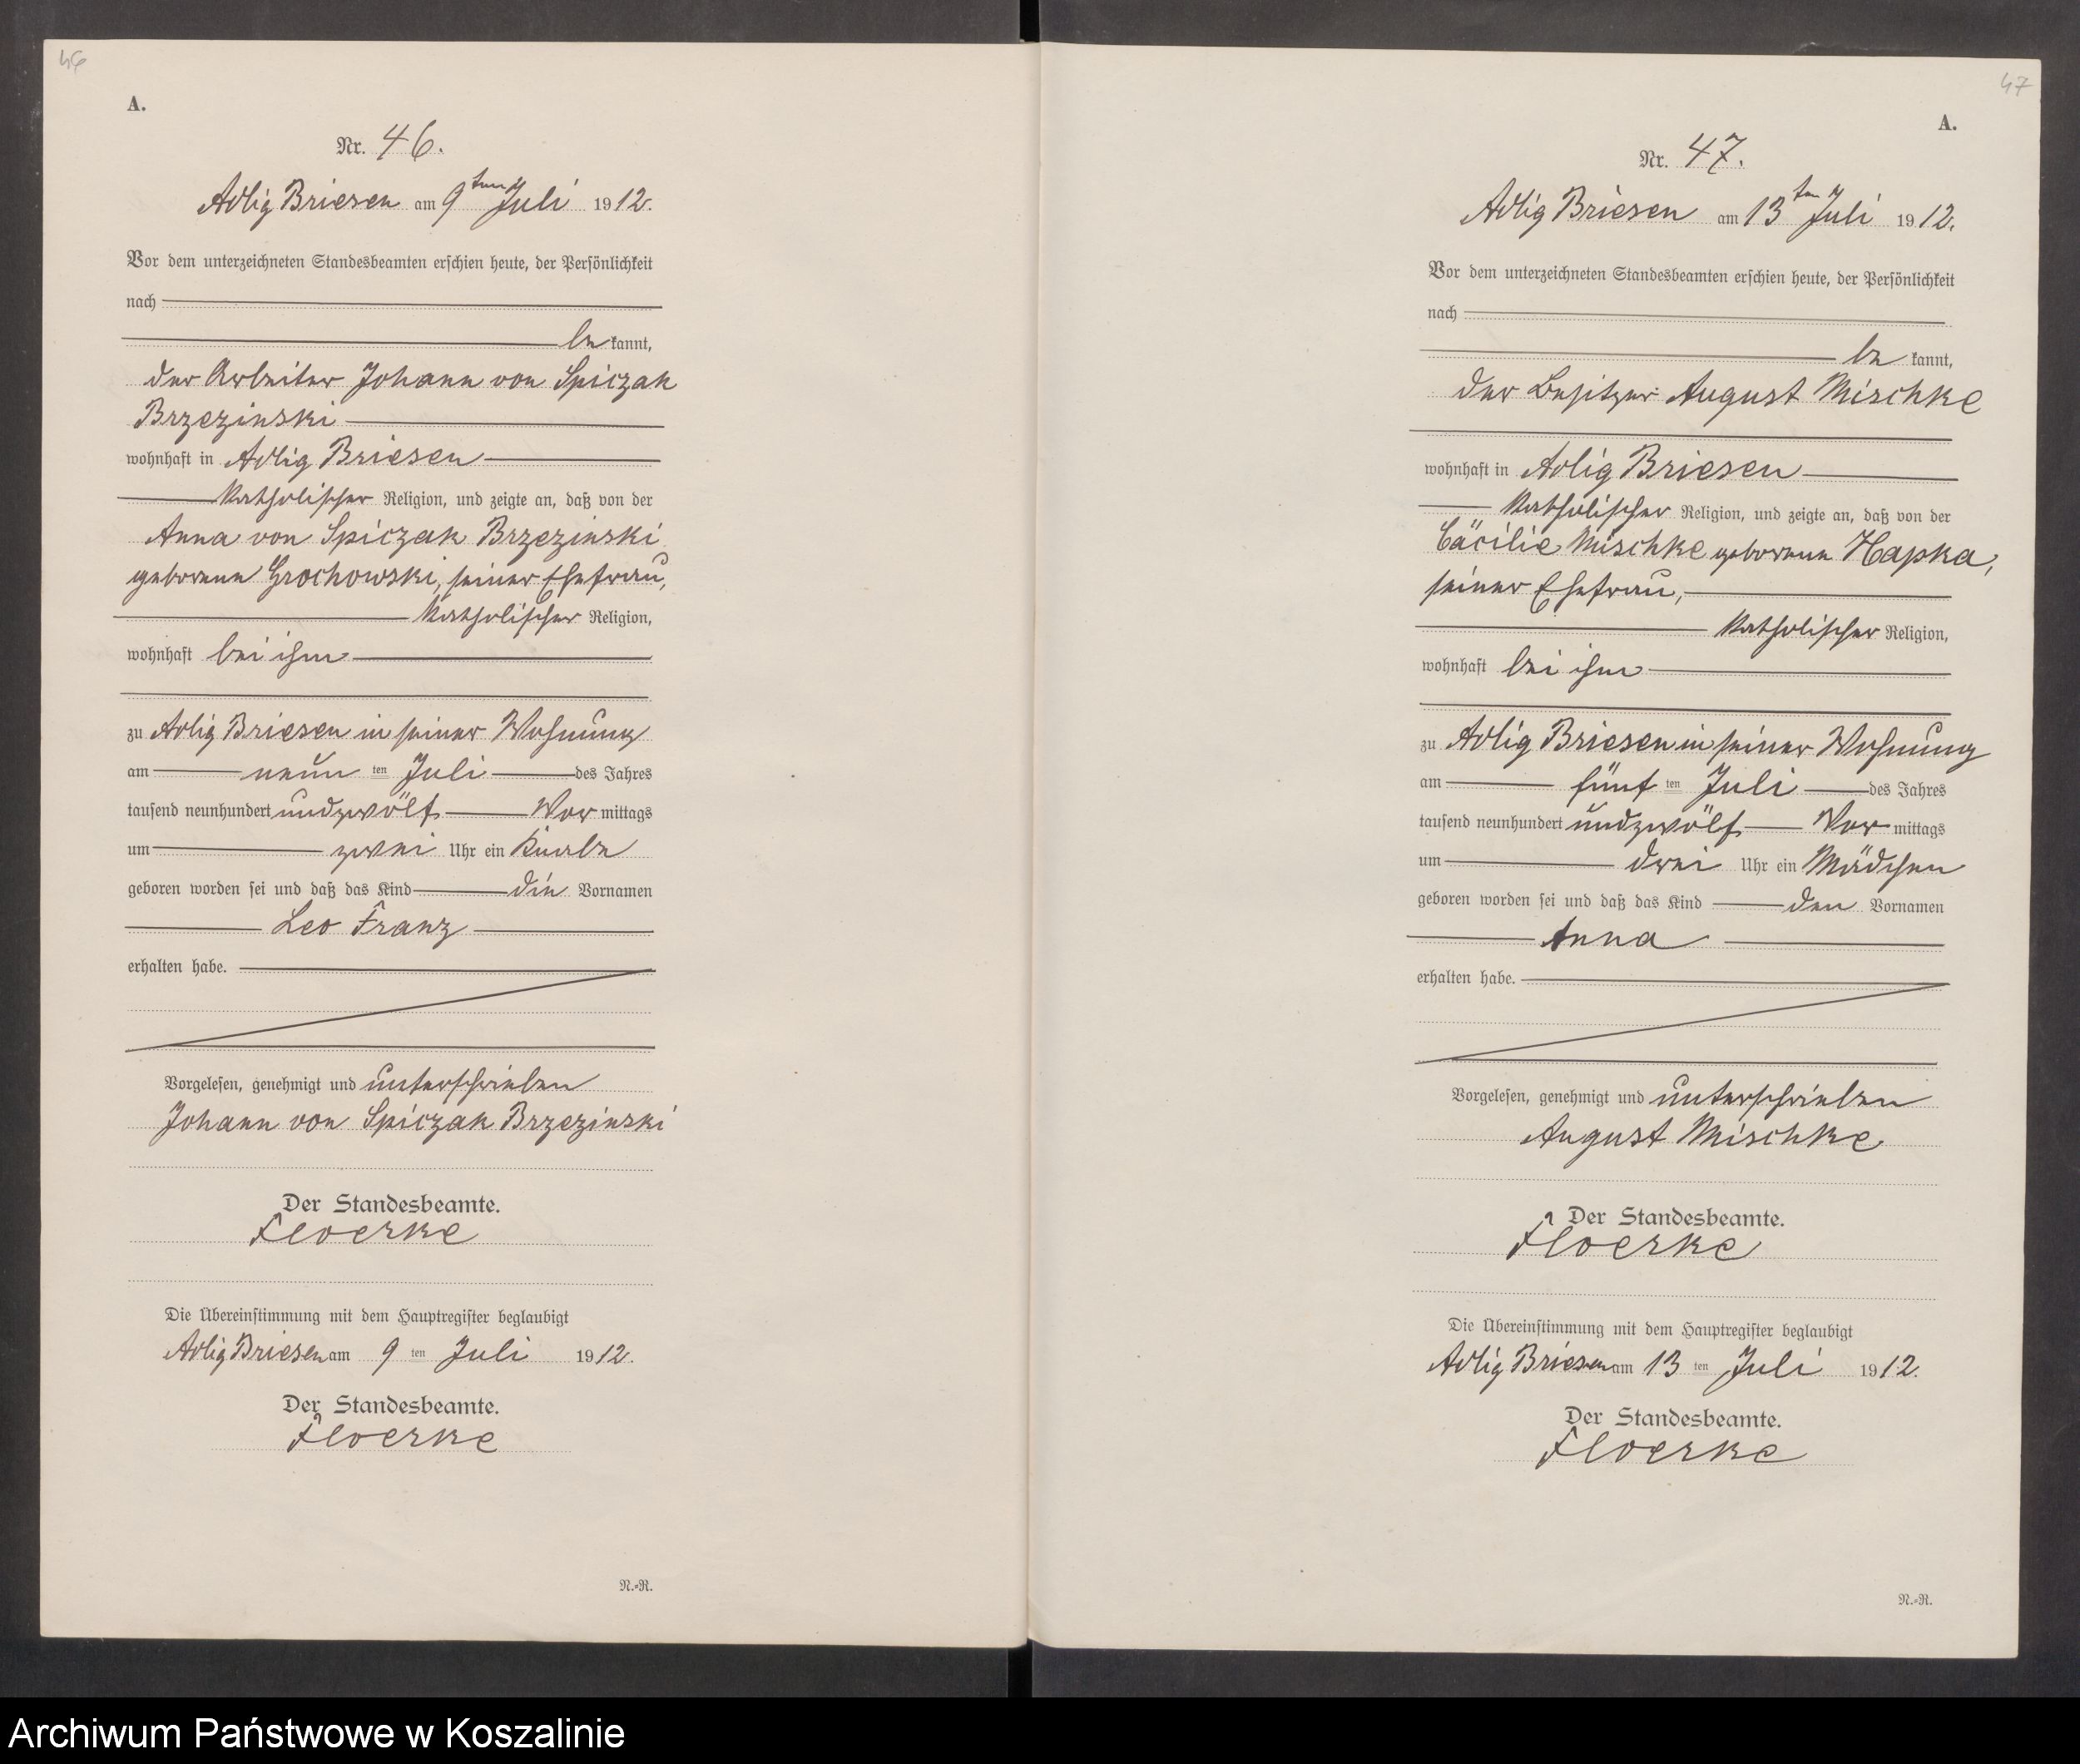 46
A.
Nr. 46.
Adlig Briesen am 9ten Juli 1912.
Vor dem unterzeichneten Standesbeamten erschien heute, der Persönlichkeit
nach
be kannt,
der Arbeiter Johann von Spiczak
Brzezinski
wohnhaft in Adlig Briesen
katholischer Religion, und zeigte an, daß von der
Anna von Spiczak Brzezinski
geborene Grochowski, seiner Ehefrau,
katholischer Religion,
wohnhaft bei ihm
zu Adlig Briesen in seiner Wohnung
am neun ten Juli des Jahres
tausend neunhundert undzwölf Vor mittags
um zwei Uhr ein Knabe
geboren worden sei und daß das Kind die Vornamen
Leo Franz
erhalten habe.
Vorgelesen, genehmigt und unterschrieben
Johann von Spiczak Brzezinski
Der Standesbeamte.
Floerke
Die Übereinstimmung mit dem Hauptregister beglaubigt
Adlig Briesen am 9 ten Juli 1912.
Der Standesbeamte.
Floerke
N.-R.
47
A.
Nr. 47.
Adlig Briesen am 13ten Juli 1912.
Vor dem unterzeichneten Standesbeamten erschien heute, der Persönlichkeit
nach
be kannt,
der Besitzer August Mischke
wohnhaft in Adlig Briesen
katholischer Religion, und zeigte an, daß von der
Cäcilie Mischke geborene Hapka,
seiner Ehefrau,
katholischer Religion,
wohnhaft bei ihm
zu Adlig Briesen in seiner Wohnung
am fünf ten Juli des Jahres
tausend neunhundert undzwölf Vor mittags
um drei Uhr ein Mädchen
geboren worden sei und daß das Kind den Vornamen
Anna
erhalten habe.
Vorgelesen, genehmigt und unterschrieben
August Mischke
Der Standesbeamte.
Floerke
Die Übereinstimmung mit dem Hauptregister beglaubigt
Adlig Briesen am 13 ten Juli 1912.
Der Standesbeamte.
Floerke
N.-R.
Archiwum Państwowe w Koszalinie